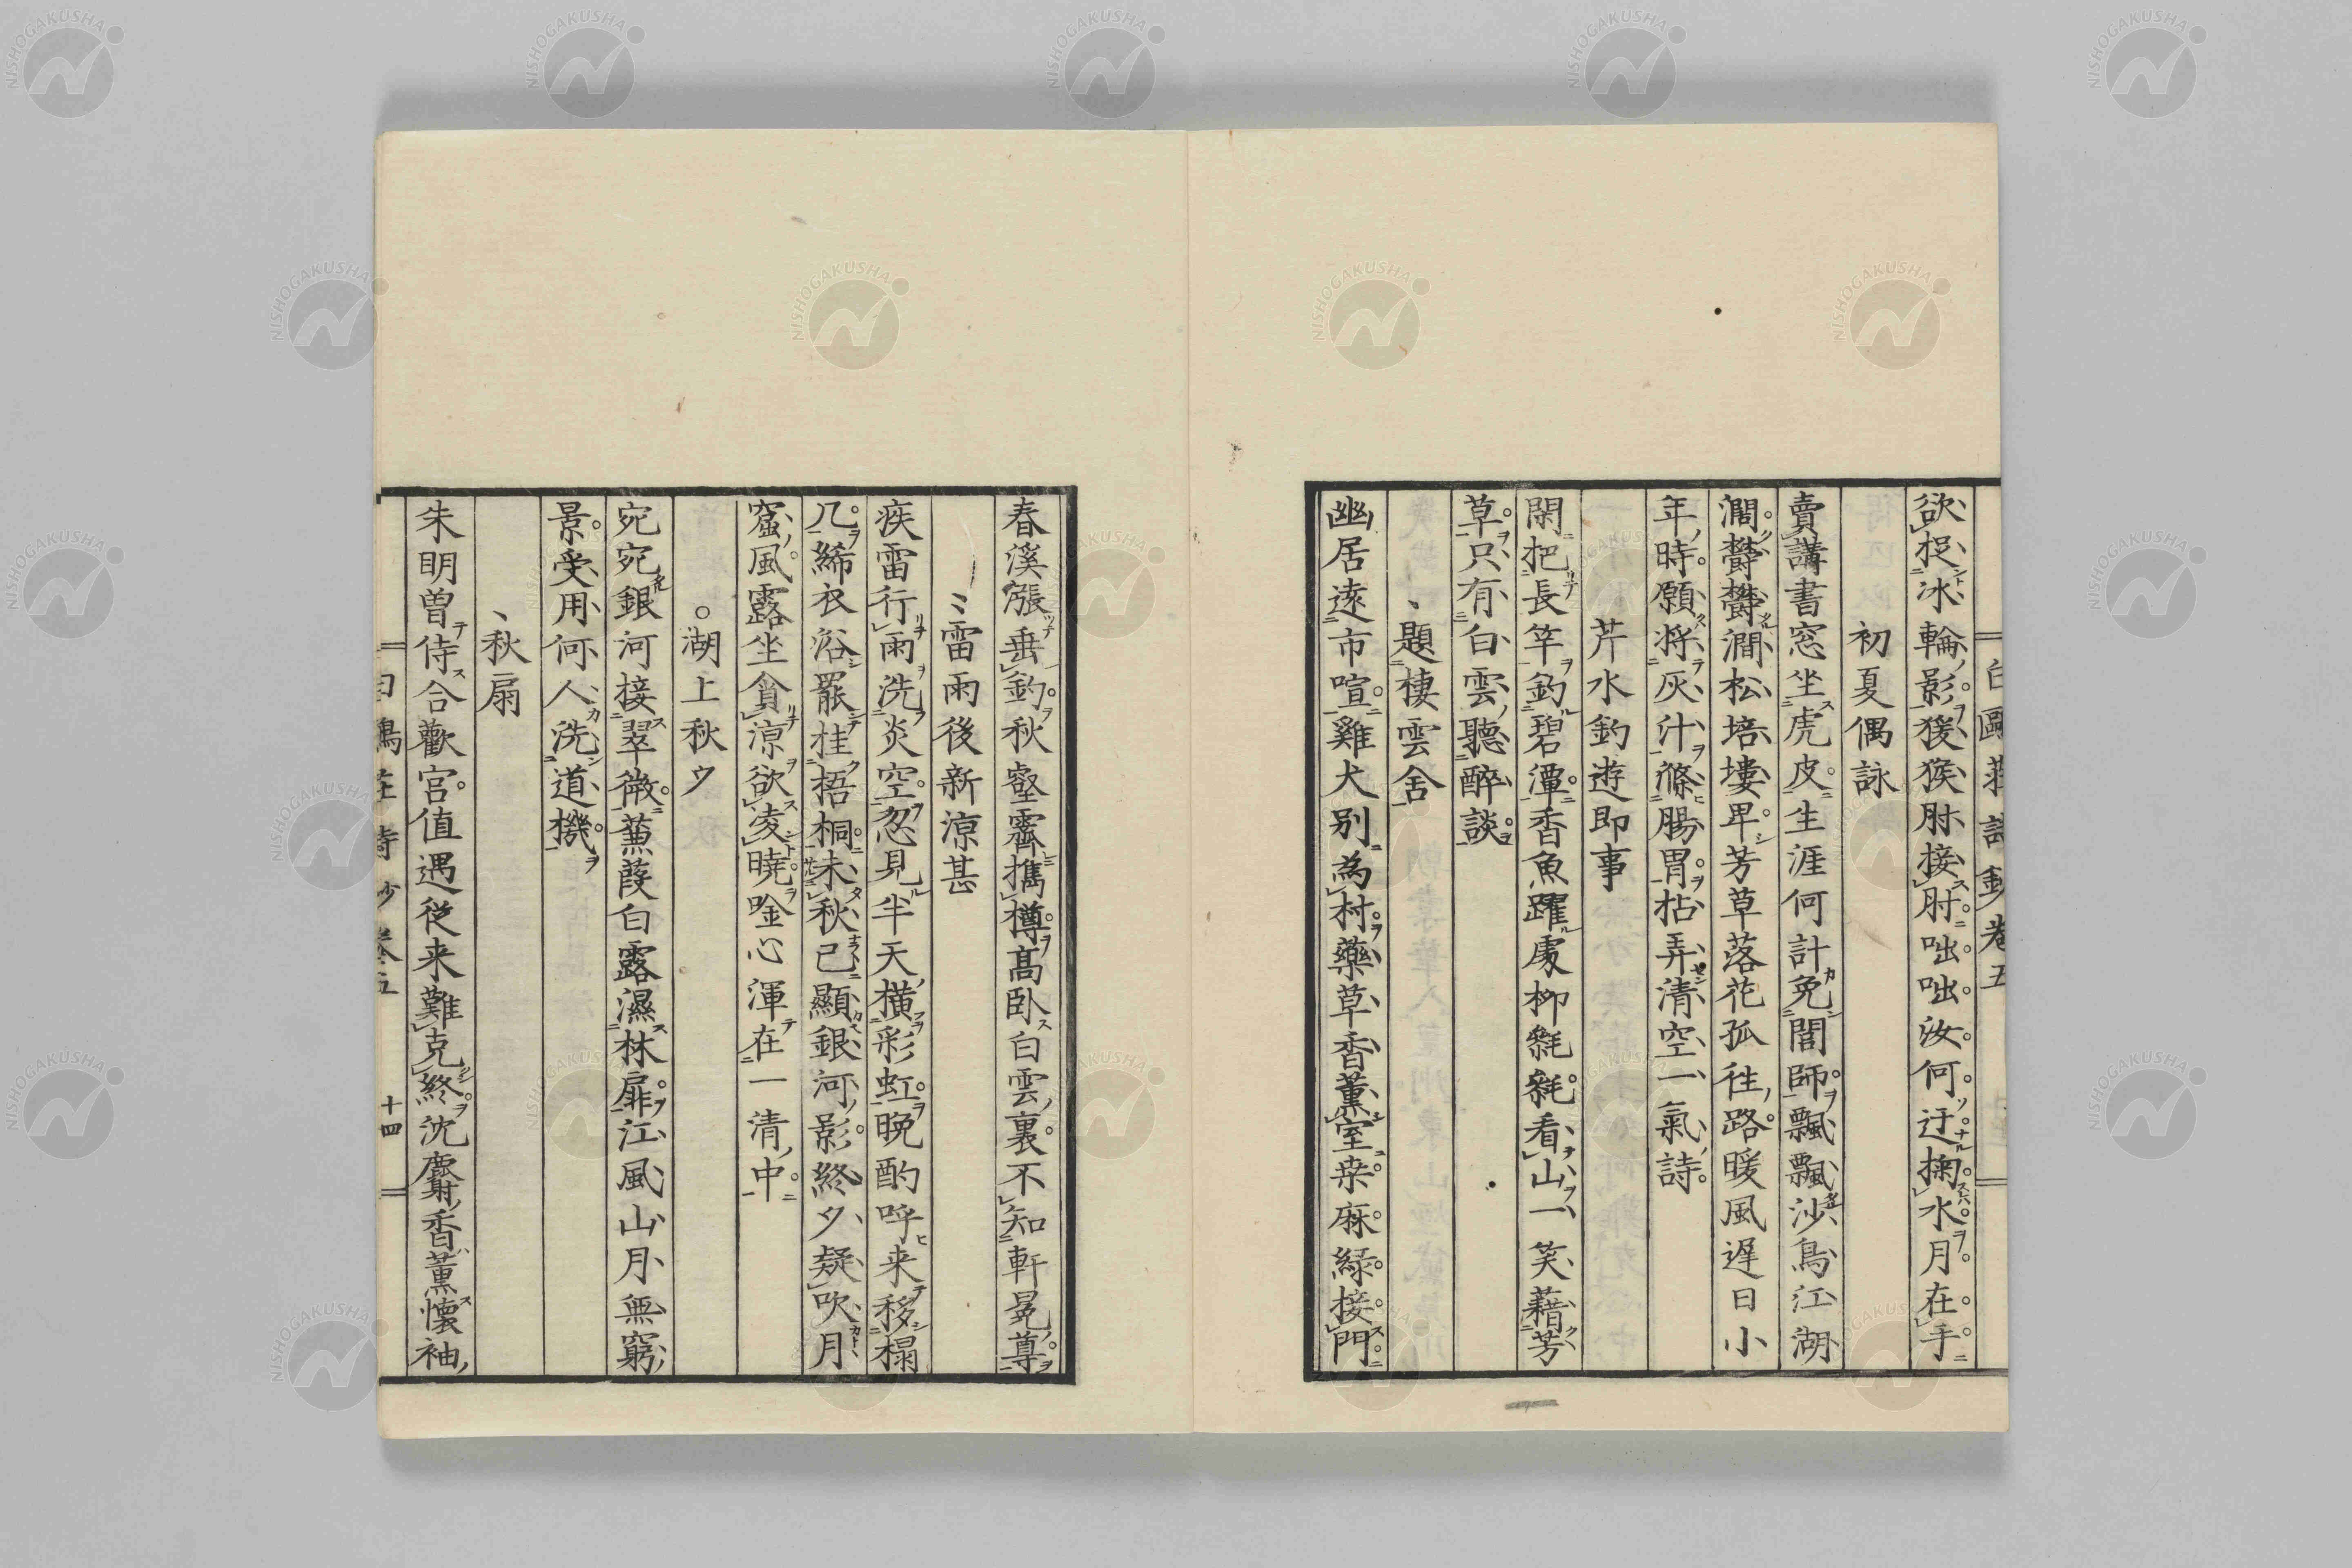 白鷗莊詩鈔卷五
欲捉冰輪影猨猴肘接肘咄咄汝何迂掬水月在手
初夏偶詠
賣講書窓坐虎皮生涯何計免閭師飄飄沙鳥江湖
濶鬱鬱澗松培塿卑芳草落花孤往路暖風遅日小
年時願將灰汁滌腸胃拈弄清空一氣詩
芹水釣遊即事
閑把長竿釣碧潭香魚躍處柳毿毿看山一笑藉芳
草只有白雲聽醉談
題棲雲舍
幽居遠市喧雞犬別為村藥草香薰室桒麻緑接門
春溪漲垂釣秋壑霽攜樽髙臥白雲裏不知軒冕尊
雷雨後新涼甚
疾雷行雨洗炎空忽見半天橫彩虹晩酌呼来移榻
几絺衣浴罷挂梧桐未秋已顯銀河影終夕疑吹月
窟風露坐貪涼欲凌曉唫心渾在一清中
湖上秋夕
宛宛銀河接翠微蒹葭白露濕林扉江風山月無窮
景受用何人洗道機
秋扇
朱明曽侍合歡宮値遇従来難克終沈麝香薰懷袖
白鷗莊詩鈔卷五 十四
NISHOGAKUSHA